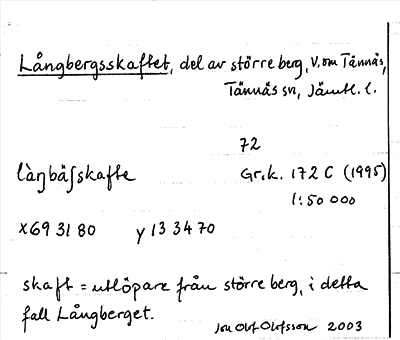 Långbergsskaftet, del av större berg, V. om Tännäs,
Tännäs sn, Jämtl. l.
72
làŋbäʃskafte
Gr.k. 172 C (1995)
1:50 000
x 69 31 80 y 13 34 70
skaft = utlöpare från större berg, i detta
fall Långberget.
Jon Olof Olofsson 2003